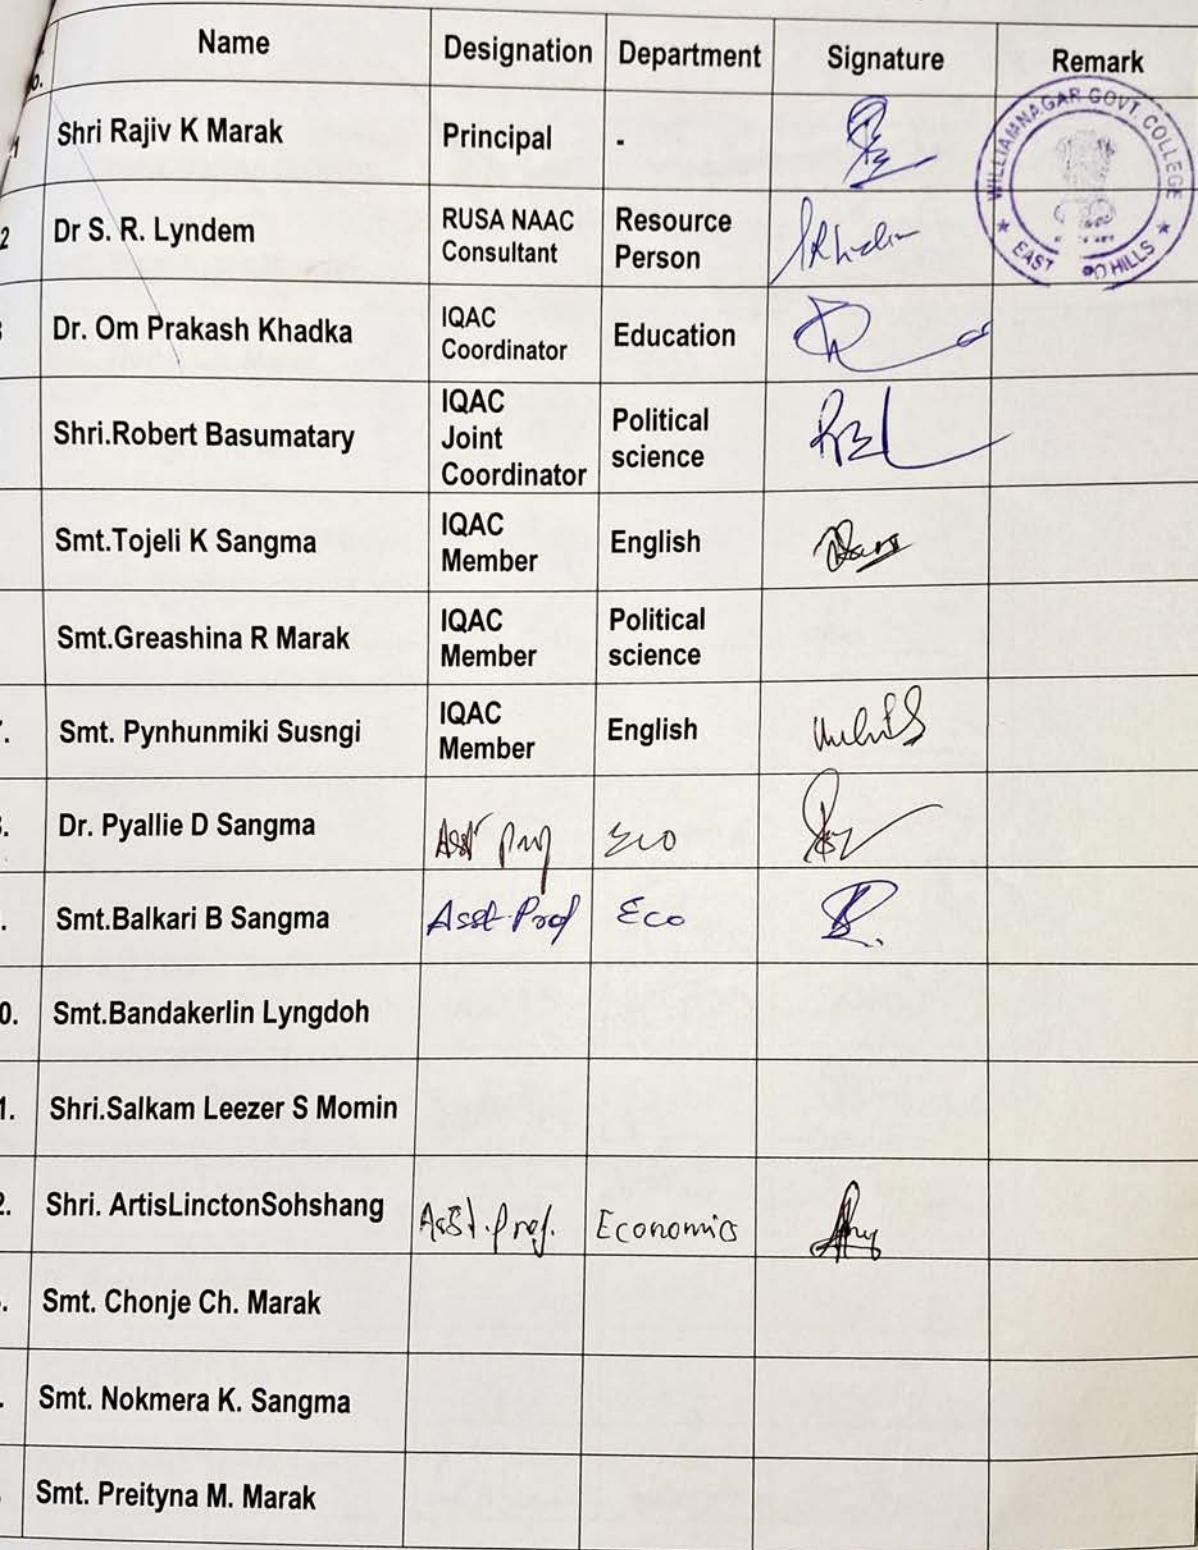 Name Designation Department Signature Remark
o.
1 Shri Rajiv K Marak Principal -
2 Dr S. R. Lyndem RUSA NAAC Consultant Resource Person
Dr. Om Prakash Khadka IQAC Coordinator Education
Shri.Robert Basumatary IQAC Joint Coordinator Political science
Smt.Tojeli K Sangma IQAC Member English
Smt.Greashina R Marak IQAC Member Political science
Smt. Pynhunmiki Susngi IQAC Member English
Dr. Pyallie D Sangma Asst Prof Eco
Smt.Balkari B Sangma Asst Prof Eco
0. Smt.Bandakerlin Lyngdoh
1. Shri.Salkam Leezer S Momin
2. Shri. ArtisLinctonSohshang Asst. Prof. Economics
Smt. Chonje Ch. Marak
Smt. Nokmera K. Sangma
Smt. Preityna M. Marak
WILLIAMNAGAR GOVT. COLLEGE
EAST HILLS